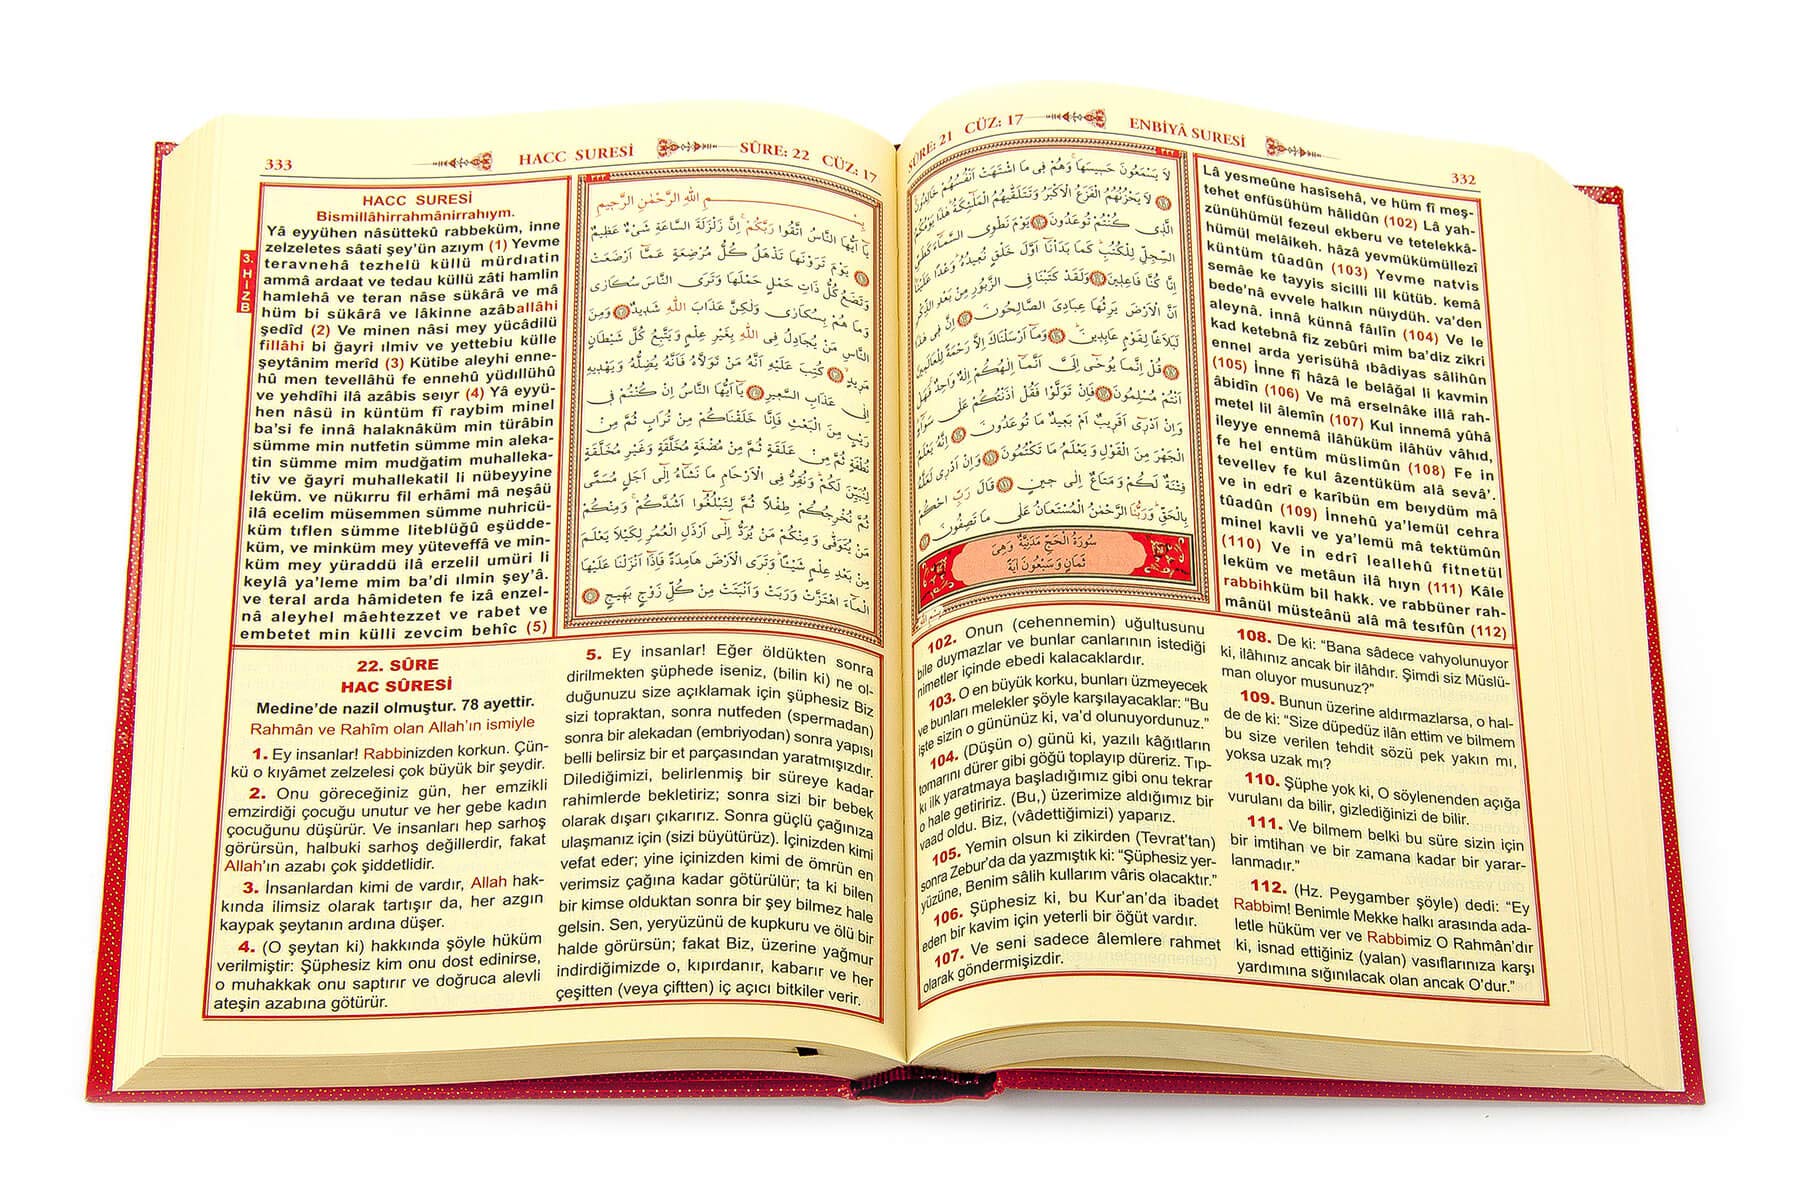 SÛRE: 21 CÜZ: 17 ENBİYÂ SURESİ 332
لَا يَسْمَعُونَ حَسِيسَهَا وَهُمْ فِى مَا اشْتَهَتْ اَنْفُسُهُمْ خَالِدُونَ
لَا يَحْزُنُهُمُ الْفَزَعُ الْاَكْبَرُ وَتَتَلَقّٰيهُمُ الْمَلٰٓئِكَةُ هٰذَا يَوْمُكُمُ
الَّذِى كُنْتُمْ تُوعَدُونَ يَوْمَ نَطْوِى السَّمَٓاءَ كَطَىِّ
السِّجِلِّ لِلْكُتُبِ كَمَا بَدَاْنَٓا اَوَّلَ خَلْقٍ نُعِيدُهُ وَعْدًا عَلَيْنَا
اِنَّا كُنَّا فَاعِلِينَ وَلَقَدْ كَتَبْنَا فِى الزَّبُورِ مِنْ بَعْدِ الذِّكْرِ
اَنَّ الْاَرْضَ يَرِثُهَا عِبَادِىَ الصَّالِحُونَ اِنَّ فِى هٰذَا
لَبَلَاغًا لِقَوْمٍ عَابِدِينَ وَمَٓا اَرْسَلْنَاكَ اِلَّا رَحْمَةً لِلْعَالَمِينَ
قُلْ اِنَّمَا يُوحٰٓى اِلَىَّ اَنَّمَٓا اِلٰهُكُمْ اِلٰهٌ وَاحِدٌ فَهَلْ
اَنْتُمْ مُسْلِمُونَ فَاِنْ تَوَلَّوْا فَقُلْ اٰذَنْتُكُمْ عَلٰى سَوَٓاءٍ
وَاِنْ اَدْرِٓى اَقَرِيبٌ اَمْ بَعِيدٌ مَا تُوعَدُونَ اِنَّهُ يَعْلَمُ
الْجَهْرَ مِنَ الْقَوْلِ وَيَعْلَمُ مَا تَكْتُمُونَ وَاِنْ اَدْرِى لَعَلَّهُ
فِتْنَةٌ لَكُمْ وَمَتَاعٌ اِلٰى حِينٍ قَالَ رَبِّ احْكُمْ
بِالْحَقِّ وَرَبُّنَا الرَّحْمٰنُ الْمُسْتَعَانُ عَلٰى مَا تَصِفُونَ
سُورَةُ الْحَجِّ مَدَنِيَّةٌ وَهِىَ
ثَمَانٍ وَسَبْعُونَ اٰيَةً
Lâ yesmeûne hasîsehâ, ve hüm fî meş-
tehet enfüsühüm hâlidûn (102) Lâ yah-
zünühümül fezeul ekberu ve tetelekkâ-
hümül melâikeh. hâzâ yevmükümüllezî
küntüm tûadûn (103) Yevme natvis
semâe ke tayyis sicilli lil kütüb. kemâ
bede'nâ evvele halkın nüıydüh. va'den
aleynâ. innâ künnâ fâılîn (104) Ve le
kad ketebnâ fiz zebûri mim ba'diz zikri
ennel arda yerisühâ ıbâdiyas sâlihûn
(105) İnne fî hâzâ le belâğal li kavmin
âbidîn (106) Ve mâ erselnâke illâ rah-
metel lil âlemîn (107) Kul innemâ yûhâ
ileyye ennemâ ilâhüküm ilâhüv vâhıd,
fe hel entüm müslimûn (108) Fe in
tevellev fe kul âzentüküm alâ sevâ'.
ve in edrî e karîbün em beıydüm mâ
tûadûn (109) İnnehû ya'lemül cehra
minel kavli ve ya'lemü mâ tektümûn
(110) Ve in edrî leallehû fitnetül
leküm ve metâun ilâ hıyn (111) Kâle
rabbihküm bil hakk. ve rabbüner rah-
mânül müsteânü alâ mâ tesıfûn (112)
102. Onun (cehennemin) uğultusunu
bile duymazlar ve bunlar canlarının istediği
nimetler içinde ebedi kalacaklardır.
103. O en büyük korku, bunları üzmeyecek
ve bunları melekler şöyle karşılayacaklar: “Bu
işte sizin o gününüz ki, va'd olunuyordunuz.”
104. (Düşün o) günü ki, yazılı kâğıtların
tomarını dürer gibi göğü toplayıp düreriz. Tıp-
kı ilk yaratmaya başladığımız gibi onu tekrar
o hale getiririz. (Bu,) üzerimize aldığımız bir
vaad oldu. Biz, (vâdettiğimizi) yaparız.
105. Yemin olsun ki zikirden (Tevrat'tan)
sonra Zebur'da da yazmıştık ki: “Şüphesiz yer-
yüzüne, Benim sâlih kullarım vâris olacaktır.”
106. Şüphesiz ki, bu Kur'an'da ibadet
eden bir kavim için yeterli bir öğüt vardır.
107. Ve seni sadece âlemlere rahmet
olarak göndermişizdir.
108. De ki: “Bana sâdece vahyolunuyor
ki, ilâhınız ancak bir ilâhdır. Şimdi siz Müslü-
man oluyor musunuz?”
109. Bunun üzerine aldırmazlarsa, o hal-
de de ki: “Size düpedüz ilân ettim ve bilmem
bu size verilen tehdit sözü pek yakın mı,
yoksa uzak mı?
110. Şüphe yok ki, O söylenenden açığa
vurulanı da bilir, gizlediğinizi de bilir.
111. Ve bilmem belki bu süre sizin için
bir imtihan ve bir zamana kadar bir yarar-
lanmadır.”
112. (Hz. Peygamber şöyle) dedi: “Ey
Rabbim! Benimle Mekke halkı arasında ada-
letle hüküm ver ve Rabbimiz O Rahmân'dır
ki, isnad ettiğiniz (yalan) vasıflarınıza karşı
yardımına sığınılacak olan ancak O'dur.”
333 HACC SURESİ SÛRE: 22 CÜZ: 17
3. HİZB
HACC SURESİ
Bismillâhirrahmânirrahıym.
Yâ eyyühen nâsüttekû rabbeküm, inne
zelzeletes sâati şey'ün azıym (1) Yevme
teravnehâ tezhelü küllü mürdıatin
ammâ ardaat ve tedau küllü zâti hamlin
hamlehâ ve teran nâse sükârâ ve mâ
hüm bi sükârâ ve lâkinne azâballâhi
şedîd (2) Ve minen nâsi mey yücâdilü
fillâhi bi ğayri ılmiv ve yettebiu külle
şeytânim merîd (3) Kütibe aleyhi enne-
hû men tevellâhü fe ennehû yüdıllühû
ve yehdîhi ilâ azâbis seıyr (4) Yâ eyyü-
hen nâsü in küntüm fî raybim minel
ba'si fe innâ halaknâküm min türâbin
sümme min nutfetin sümme min aleka-
tin sümme mim mudğatim muhalleka-
tiv ve ğayri muhallekatil li nübeyyine
leküm. ve nükırru fil erhâmi mâ neşâü
ilâ ecelim müsemmen sümme nuhricü-
küm tıflen sümme liteblüğû eşüdde-
küm, ve minküm mey yüteveffâ ve min-
küm mey yüraddü ilâ erzelil umüri li
keylâ ya'leme mim ba'di ılmin şey'â.
ve teral arda hâmideten fe izâ enzel-
nâ aleyhel mâehtezzet ve rabet ve
embetet min külli zevcim behîc (5)
بِسْمِ اللّٰهِ الرَّحْمٰنِ الرَّحِيمِ
يَٓا اَيُّهَا النَّاسُ اتَّقُوا رَبَّكُمْ اِنَّ زَلْزَلَةَ السَّاعَةِ شَىْءٌ عَظِيمٌ
يَوْمَ تَرَوْنَهَا تَذْهَلُ كُلُّ مُرْضِعَةٍ عَمَّٓا اَرْضَعَتْ
وَتَضَعُ كُلُّ ذَاتِ حَمْلٍ حَمْلَهَا وَتَرَى النَّاسَ سُكَارٰى
وَمَا هُمْ بِسُكَارٰى وَلٰكِنَّ عَذَابَ اللّٰهِ شَدِيدٌ وَمِنَ
النَّاسِ مَنْ يُجَادِلُ فِى اللّٰهِ بِغَيْرِ عِلْمٍ وَيَتَّبِعُ كُلَّ شَيْطَانٍ
مَرِيدٍ كُتِبَ عَلَيْهِ اَنَّهُ مَنْ تَوَلَّاهُ فَاَنَّهُ يُضِلُّهُ وَيَهْدِيهِ
اِلٰى عَذَابِ السَّعِيرِ يَٓا اَيُّهَا النَّاسُ اِنْ كُنْتُمْ فِى
رَيْبٍ مِنَ الْبَعْثِ فَاِنَّا خَلَقْنَاكُمْ مِنْ تُرَابٍ ثُمَّ مِنْ
نُطْفَةٍ ثُمَّ مِنْ عَلَقَةٍ ثُمَّ مِنْ مُضْغَةٍ مُخَلَّقَةٍ وَغَيْرِ مُخَلَّقَةٍ
لِنُبَيِّنَ لَكُمْ وَنُقِرُّ فِى الْاَرْحَامِ مَا نَشَٓاءُ اِلٰٓى اَجَلٍ مُسَمًّى
ثُمَّ نُخْرِجُكُمْ طِفْلًا ثُمَّ لِتَبْلُغُٓوا اَشُدَّكُمْ وَمِنْكُمْ
مَنْ يُتَوَفّٰى وَمِنْكُمْ مَنْ يُرَدُّ اِلٰٓى اَرْذَلِ الْعُمُرِ لِكَيْلَا يَعْلَمَ
مِنْ بَعْدِ عِلْمٍ شَيْئًا وَتَرَى الْاَرْضَ هَامِدَةً فَاِذَٓا اَنْزَلْنَا عَلَيْهَا
الْمَٓاءَ اهْتَزَّتْ وَرَبَتْ وَاَنْبَتَتْ مِنْ كُلِّ زَوْجٍ بَهِيجٍ
22. SÛRE
HAC SÛRESİ
Medine'de nazil olmuştur. 78 ayettir.
Rahmân ve Rahîm olan Allah'ın ismiyle
1. Ey insanlar! Rabbinizden korkun. Çün-
kü o kıyâmet zelzelesi çok büyük bir şeydir.
2. Onu göreceğiniz gün, her emzikli
emzirdiği çocuğu unutur ve her gebe kadın
çocuğunu düşürür. Ve insanları hep sarhoş
görürsün, halbuki sarhoş değillerdir, fakat
Allah'ın azabı çok şiddetlidir.
3. İnsanlardan kimi de vardır, Allah hak-
kında ilimsiz olarak tartışır da, her azgın
kaypak şeytanın ardına düşer.
4. (O şeytan ki) hakkında şöyle hüküm
verilmiştir: Şüphesiz kim onu dost edinirse,
o muhakkak onu saptırır ve doğruca alevli
ateşin azabına götürür.
5. Ey insanlar! Eğer öldükten sonra
dirilmekten şüphede iseniz, (bilin ki) ne ol-
duğunuzu size açıklamak için şüphesiz Biz
sizi topraktan, sonra nutfeden (spermadan)
sonra bir alekadan (embriyodan) sonra yapısı
belli belirsiz bir et parçasından yaratmışızdır.
Dilediğimizi, belirlenmiş bir süreye kadar
rahimlerde bekletiriz; sonra sizi bir bebek
olarak dışarı çıkarırız. Sonra güçlü çağınıza
ulaşmanız için (sizi büyütürüz). İçinizden kimi
vefat eder; yine içinizden kimi de ömrün en
verimsiz çağına kadar götürülür; ta ki bilen
bir kimse olduktan sonra bir şey bilmez hale
gelsin. Sen, yeryüzünü de kupkuru ve ölü bir
halde görürsün; fakat Biz, üzerine yağmur
indirdiğimizde o, kıpırdanır, kabarır ve her
çeşitten (veya çiftten) iç açıcı bitkiler verir.